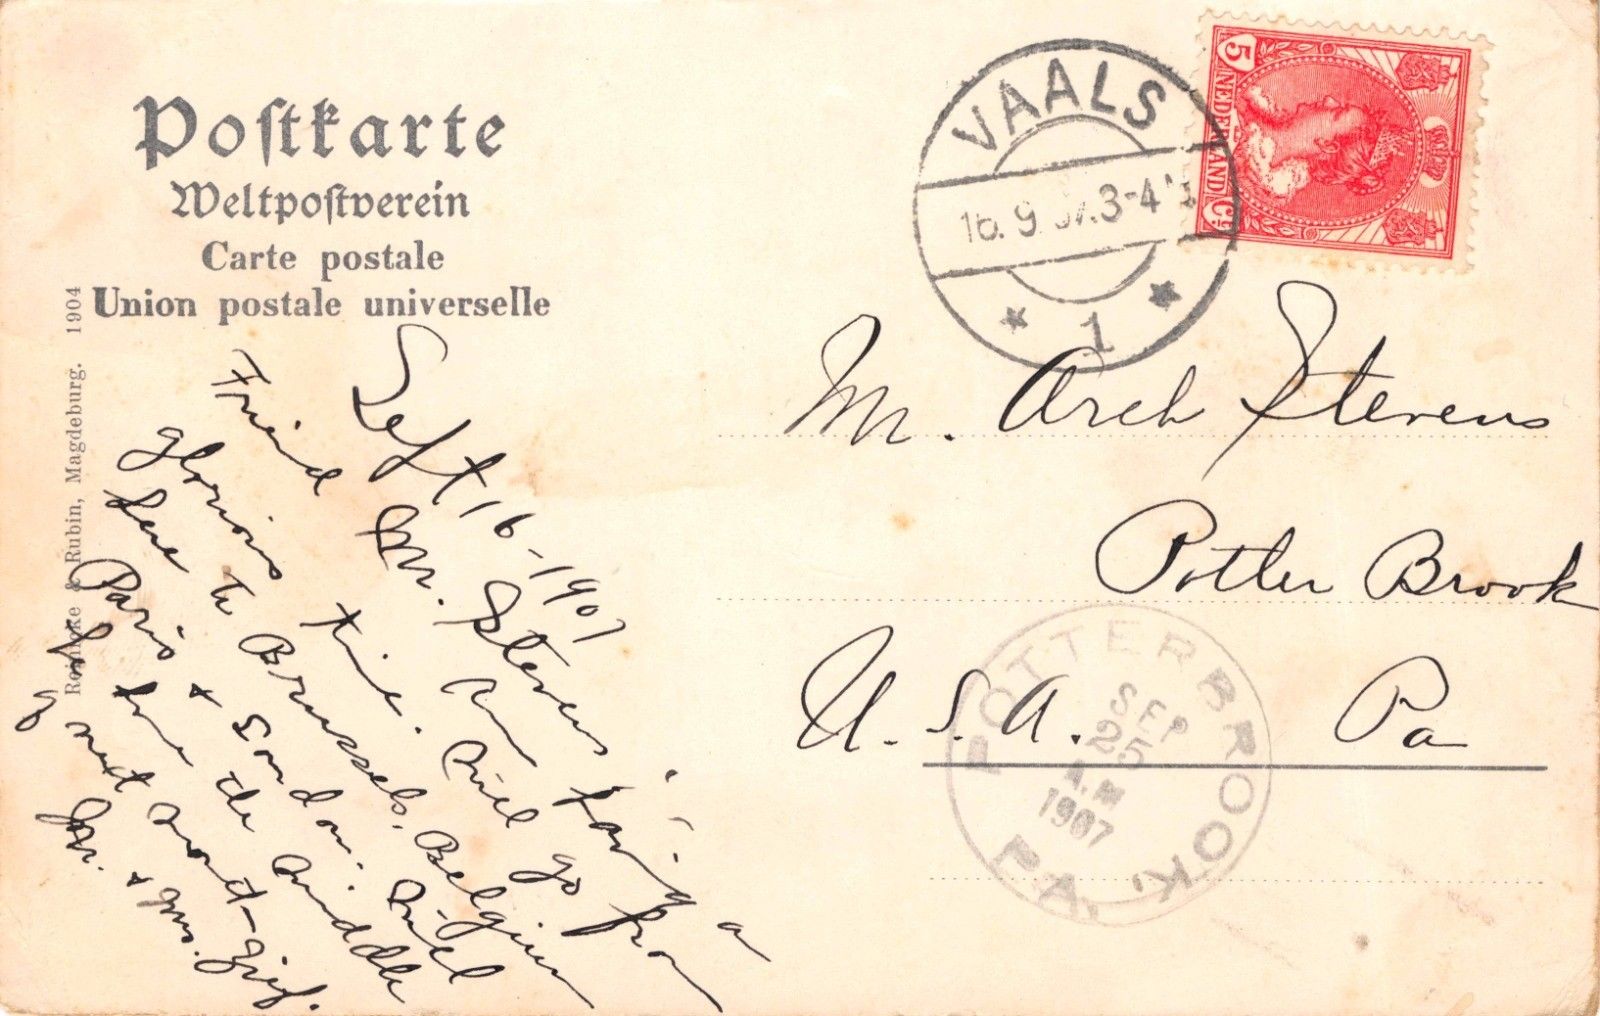 Postkarte
Weltpostverein
Carte postale
Union postale universelle
Reinicke & Rubin, Magdeburg. 1904
VAALS
16.9.07.3-4
1
5
NEDERLAND
Ct
Sept 16-1907
Friend Mr. Stevens
Am having a
glorious time. Will go from
here to Brussels, Belgium
Paris & London. Will
be home the middle
of next month-
Mr. & Mrs.
Mr. Arch Stevens
Potter Brook
U.S.A. Pa
POTTERBROOK,
PA.
SEP
25
A.M
1907